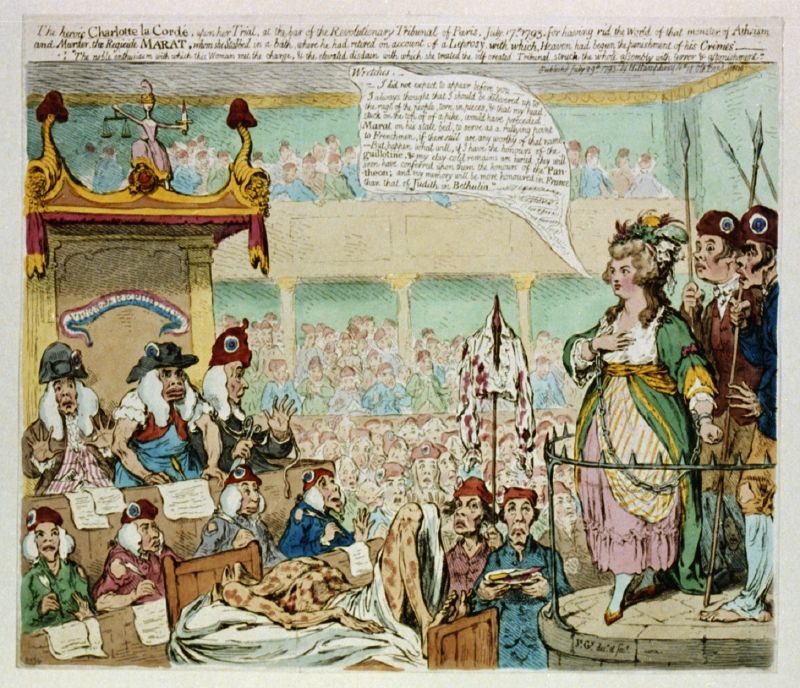 The heroic Charlotte la Cordé, upon her Trial, at the bar of the Revolutionary Tribunal of Paris, July 17th 1793, for having rid the World of that monster of Atheism
and Murder, the Regicide MARAT, whom she Stabbed in a bath, where he had retired on account of a Leprosy, with which, Heaven had begun the punishment of his Crimes.
"The noble enthusiasm with which this Woman met the charge, & the elevated disdain with which she treated the self created Tribunal, struck the whole assembly with terror & astonishment."
Publishd July 29th 1793, by H. Humphrey No 18 Old Bond Street
Wretches,
I did not expect to appear before you
I always thought that I should be delivered up to
the rage of the people, torn in pieces, & that my head,
stuck on the top of a pike, would have preceded
Marat on his state bed, to serve as a rallying point
to Frenchmen, if there still are any worthy of that name.
But, happen what will, if I have the honours of the
guillotine, & my clay cold remains are buried, they will
soon have conferred upon them the honours of the Pan-
theon; and my memory will be more honoured in France
than that of Judith in Bethulia."
VIVE LA REPUBLIC
Js. Gy. des. et fect.